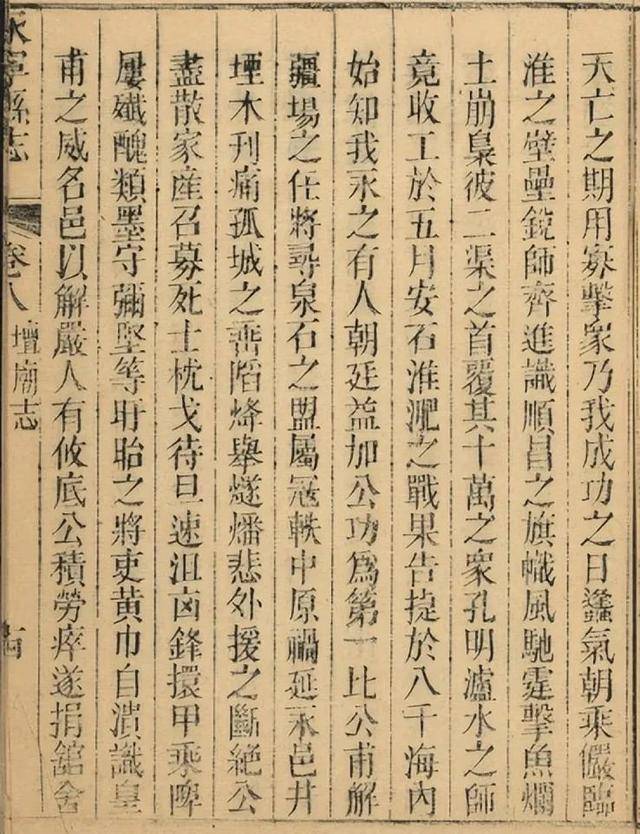 天亡之期用寡擊衆乃我成功之日蠭氣朝乘儼臨
淮之壁壘銳師齊進識順昌之旗幟風馳霆擊魚爛
土崩梟彼二渠之首覆其十萬之衆孔明瀘水之師
竟收工於五月安石淮淝之戰果告捷於八千海內
始知我永之有人朝廷益加公功爲第一比公甫解
疆場之任將尋泉石之盟屬寇軼中原禍延永邑井
堙木刊痛孤城之薦陷烽舉燧燔悲外援之斷絕公
盡散家産召募死士枕戈待旦速沮凶鋒擐甲乘陴
屢殲醜類墨守彌堅等盱眙之將吏黃巾自潰識皇
甫之威名邑以解嚴人有攸底公積勞瘁遂捐舘舍
永寧縣志
卷八
壇廟志